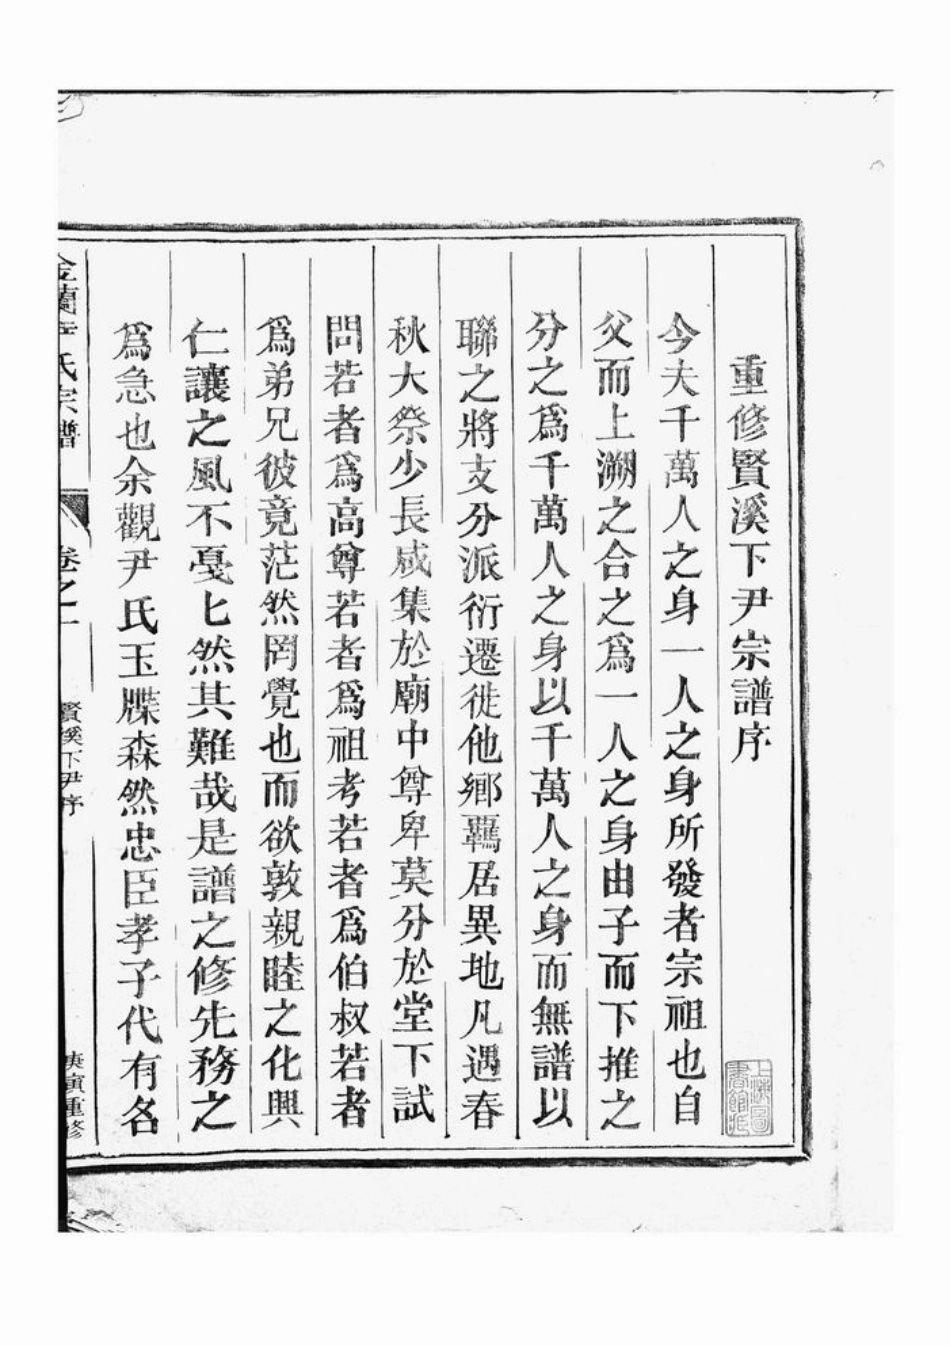 重修賢溪下尹宗譜序
今夫千萬人之身一人之身所發者宗祖也自
父而上溯之合之爲一人之身由子而下推之
分之爲千萬人之身以千萬人之身而無譜以
聯之將支分派衍遷徙他鄉羈居異地凡遇春
秋大祭少長咸集於廟中尊卑莫分於堂下試
問若者爲高尊若者爲祖考若者爲伯叔若者
爲弟兄彼竟茫然罔覺也而欲敦親睦之化興
仁讓之風不戞匕然其難哉是譜之修先務之
爲急也余觀尹氏玉牒森然忠臣孝子代有名
金蘭尹氏宗譜
卷之一
賢溪下尹序
庚寅重修
上海圖書館藏